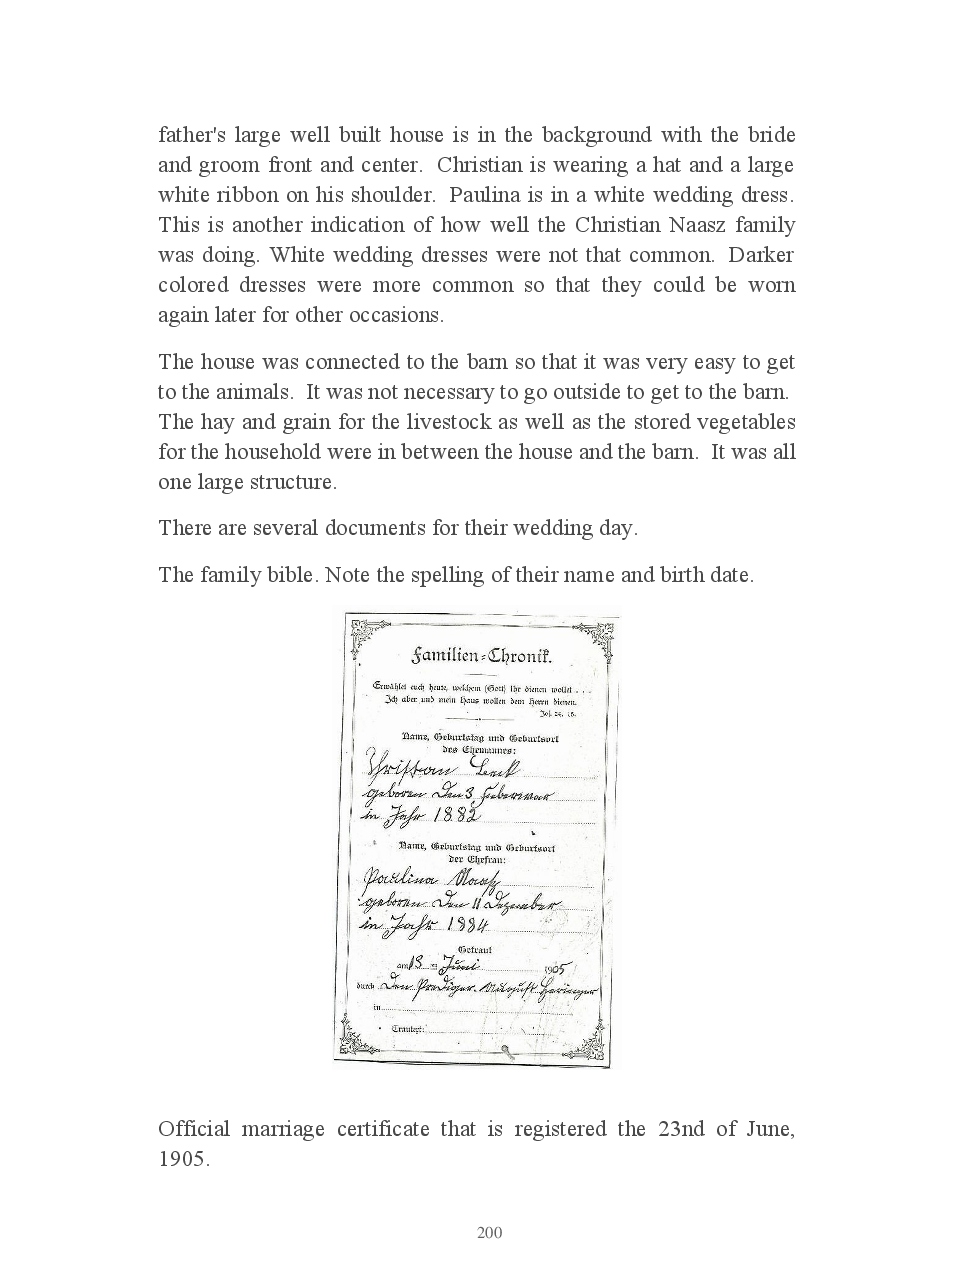 father's large well built house is in the background with the bride
and groom front and center.  Christian is wearing a hat and a large
white ribbon on his shoulder.  Paulina is in a white wedding dress.
This is another indication of how well the Christian Naasz family
was doing. White wedding dresses were not that common.  Darker
colored dresses were more common so that they could be worn
again later for other occasions.
The house was connected to the barn so that it was very easy to get
to the animals.  It was not necessary to go outside to get to the barn.
The hay and grain for the livestock as well as the stored vegetables
for the household were in between the house and the barn.  It was all
one large structure.
There are several documents for their wedding day.
The family bible. Note the spelling of their name and birth date.
Familien-Chronik.
Erwählet euch heute, welchem (Gott) Ihr dienen wollet . . .
Ich aber und mein Haus wollen dem Herrn dienen.
Jos. 24, 15.
Name, Geburtstag und Geburtsort
des Ehemannes:
Christian
geboren den 3
in Jahr 1882
Name, Geburtstag und Geburtsort
der Ehefrau:
Paulina
geboren den 11 Dezember
in Jahr 1884
Getraut
am 13 Juni 1905
durch den Prediger August
in
Trautext:
Official marriage certificate that is registered the 23nd of June,
1905.
200